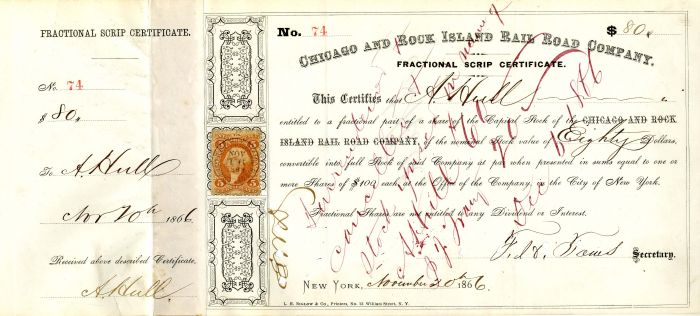 FRACTIONAL SCRIP CERTIFICATE.
No. 74
$ 80.
To A. Hull
Nov 20th 1866
Received above described Certificate.
A. Hull
No. 74
$ 80.
CHICAGO AND ROCK ISLAND RAIL ROAD COMPANY.
FRACTIONAL SCRIP CERTIFICATE.
This Certifies that A. Hull is
entitled to a fractional part of a share of the Capital Stock of the CHICAGO AND ROCK
ISLAND RAIL ROAD COMPANY, of the nominal Stock value of Eighty Dollars,
convertible into full Stock of said Company at par when presented in sums equal to one or
more Shares of $100 each at the Office of the Company, in the City of New York.
Fractional Shares are not entitled to any Dividend or Interest.
Secretary.
NEW YORK, November 20th 1866
L. H. BIGLOW & Co., Printers, No. 13 William Street, N. Y.
5
5
in name of
A Hull
Dec
1866